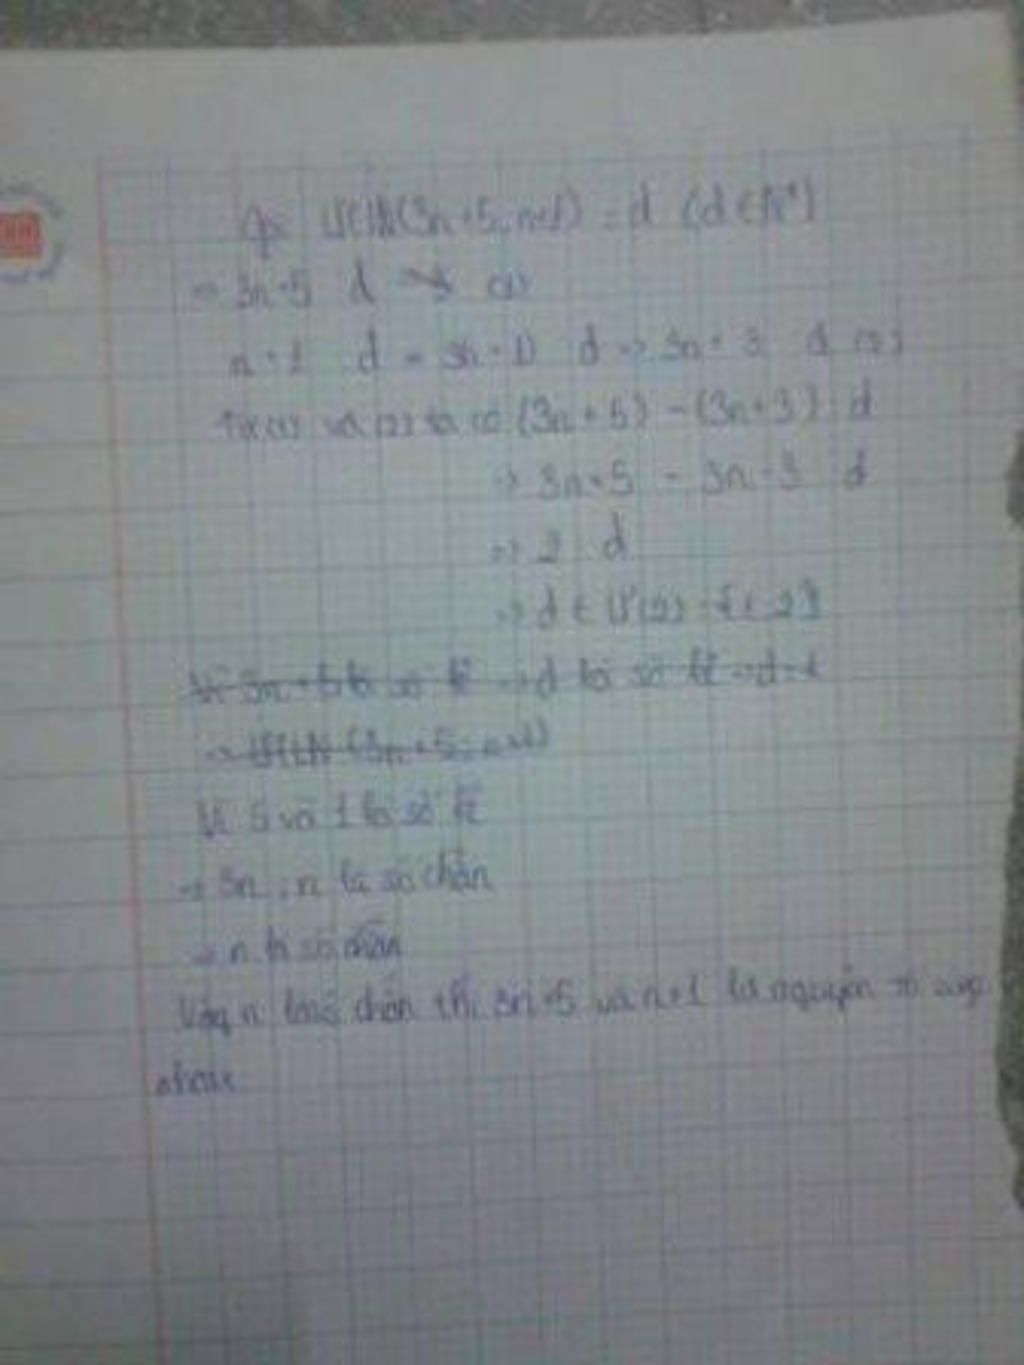 Gọi ƯCLN(3n+5, n+1) = d (d ∈ N*)
⇒ 3n+5 ⋮ d (1)
n+1 ⋮ d ⇒ 3(n+1) ⋮ d ⇒ 3n+3 ⋮ d (2)
Từ (1) và (2) ta có (3n+5) - (3n+3) ⋮ d
⇒ 3n+5 - 3n-3 ⋮ d
⇒ 2 ⋮ d
⇒ d ∈ Ư(2) = {1; 2}
Vì 3n+5 là số lẻ ⇒ d là số lẻ ⇒ d=1
⇒ ƯCLN (3n+5; n+1)
Vì 5 và 1 là số lẻ
⇒ 3n, n là số chẵn
⇒ n là số chẵn
Vậy n là số chẵn thì 3n+5 và n+1 là nguyên tố cùng
nhau